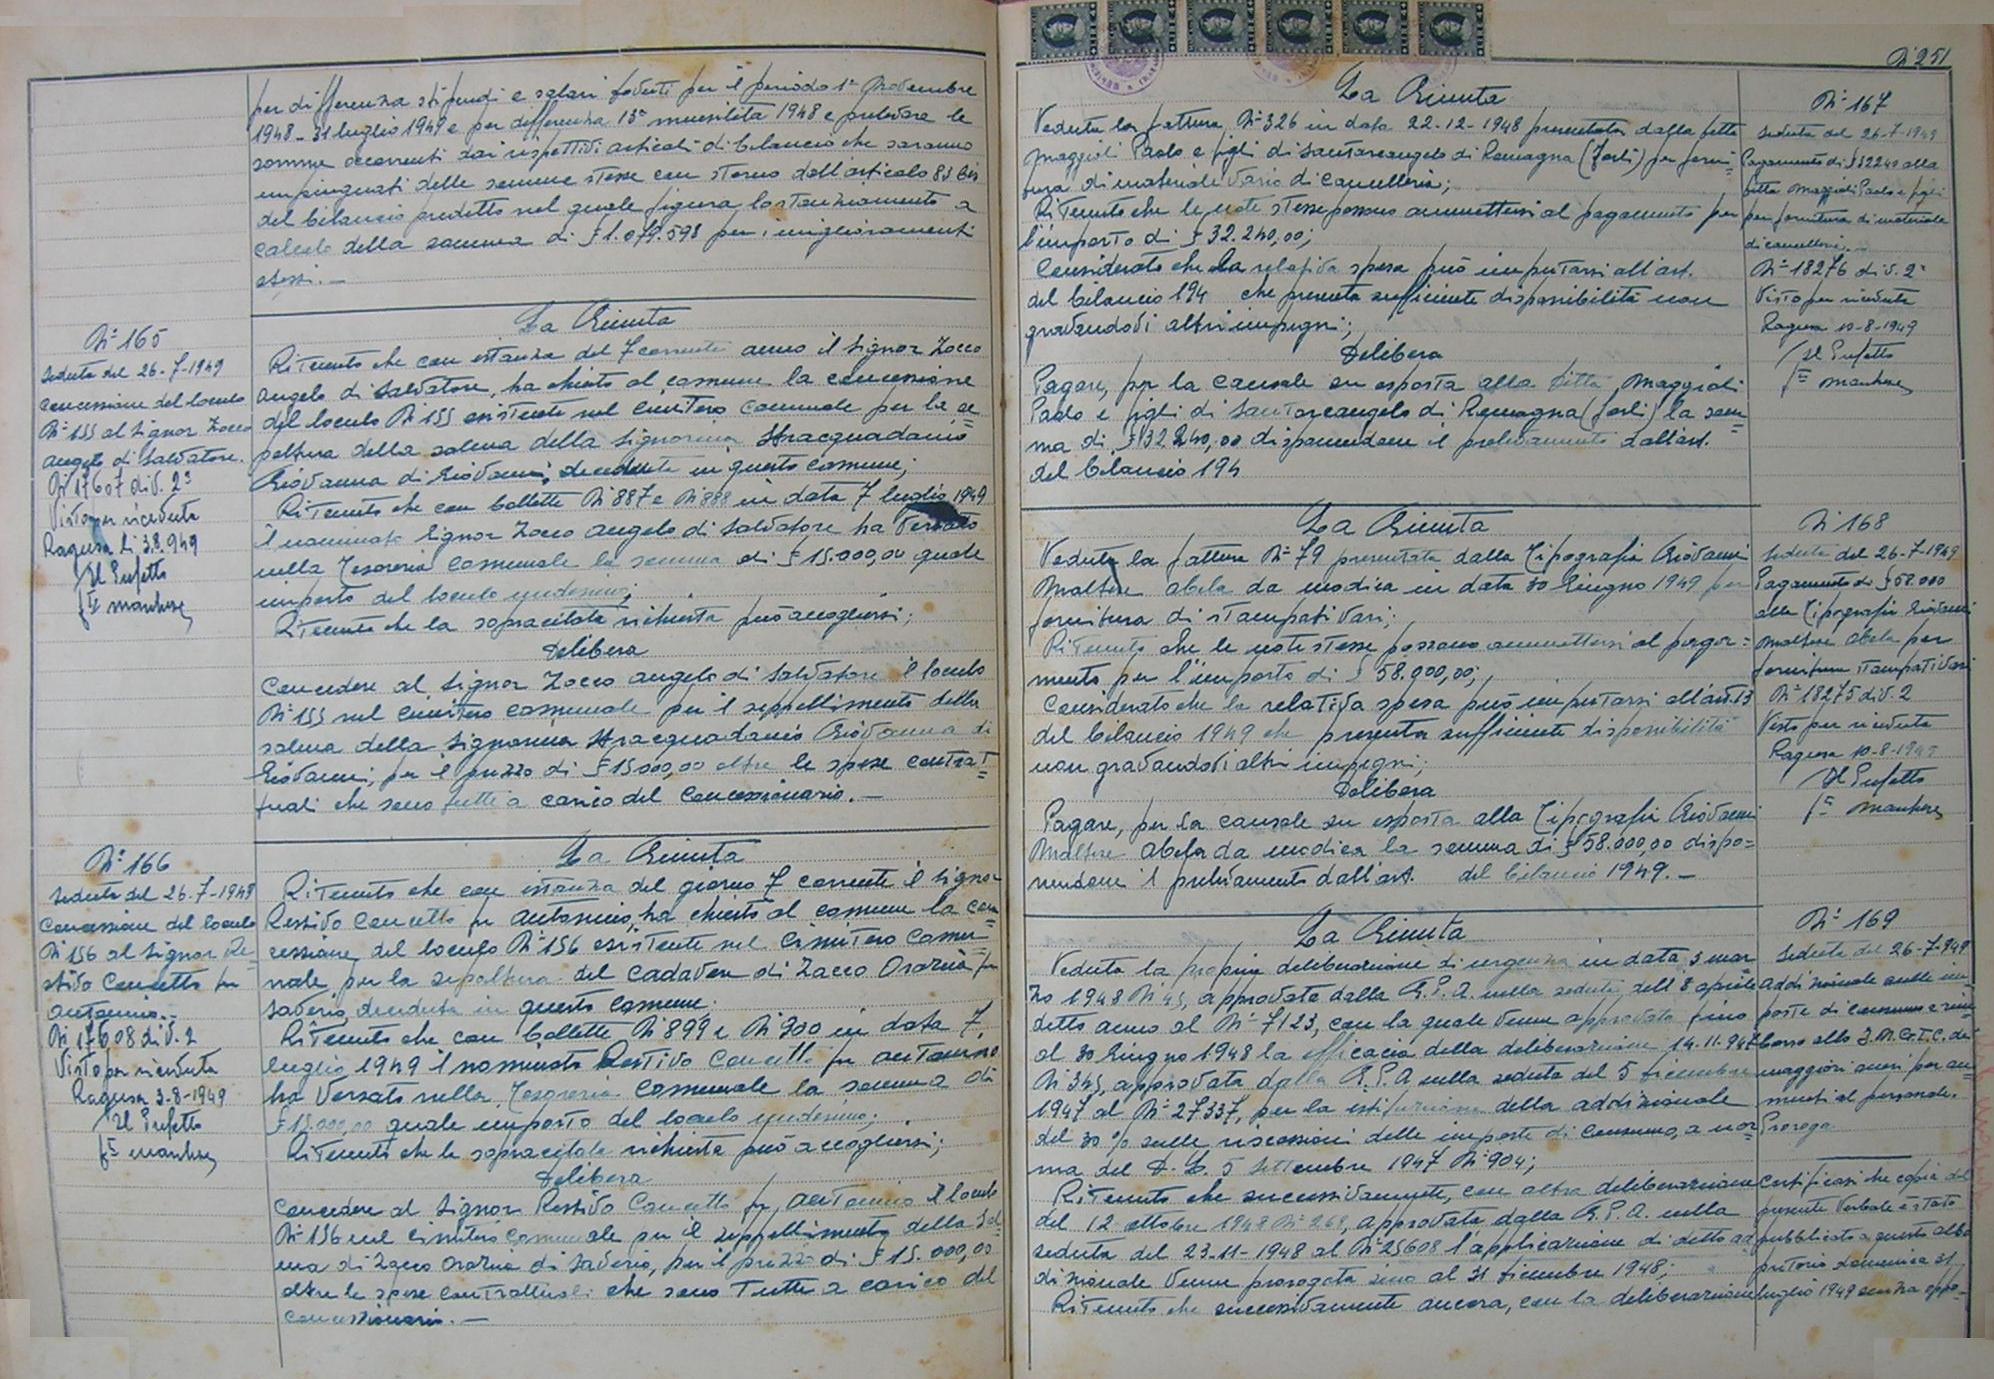 per differenza stipendi e salari dovuti per il periodo 1° Novembre
1948 - 31 luglio 1949 e per differenza 13ª mensilità 1948 e prelevare le
somme occorrenti dai rispettivi articoli di bilancio che saranno
impinguati delle somme stesse con storno dall'articolo 83 bis
del bilancio predetto nel quale figura lo stanziamento a
calcolo della somma di £ 1.079.598 per i miglioramenti
stessi. —
N° 165
Seduta del 26-7-1949
Concessione del loculo
N° 155 al Signor Zocco
Angelo di Salvatore.
N° 17607 div. 2ª
Visto per ricevuta
Ragusa lì 3.8.949
Il Prefetto
fto Marchese
La Giunta
Ritenuto che con istanza del 7 corrente anno il Signor Zocco
Angelo di Salvatore, ha chiesto al comune la concessione
del loculo N° 155 esistente nel Cimitero Comunale per la se=
poltura della salma della Signorina Stracquadanio
Giovanna di Giovanni, deceduta in questo comune;
Ritenuto che con bollette N° 887 e N° 888 in data 7 luglio 1949
il nominato Signor Zocco Angelo di Salvatore ha versato
nella Tesoreria Comunale la somma di £ 15.000,00 quale
importo del loculo medesimo;
Ritenuto che la sopracitata richiesta può accogliersi;
Delibera
Concedere al Signor Zocco Angelo di Salvatore il loculo
N° 155 nel Cimitero Comunale per il seppellimento della
salma della Signorina Stracquadanio Giovanna di
Giovanni, per il prezzo di £ 15.000,00 oltre le spese contrat=
tuali che sono tutte a carico del Concessionario. —
N° 166
Seduta del 26-7-1949
Concessione del loculo
N° 156 al Signor Re=
stivo Concetto fu
Antonino. -
N° 17608 div. 2
Visto per ricevuta
Ragusa 3-8-1949
Il Prefetto
fto Marchese
La Giunta
Ritenuto che con istanza del giorno 7 corrente il Signor
Restivo Concetto fu Antonino, ha chiesto al comune la con=
cessione del loculo N° 156 esistente nel Cimitero Comu=
nale per la sepoltura del cadavere di Zacco Orazia fu
Saverio, deceduta in questo comune;
Ritenuto che con bollette N° 899 e N° 900 in data 7
luglio 1949 il nominato Restivo Concetto fu Antonino
ha versato nella Tesoreria Comunale la somma di
£ 15.000,00 quale importo del loculo medesimo;
Ritenuto che la sopracitata richiesta può accogliersi;
Delibera
Concedere al Signor Restivo Concetto fu Antonino il loculo
N° 156 nel Cimitero Comunale per il seppellimento della sal=
ma di Zacco Orazia di Saverio, per il prezzo di £ 15.000,00
oltre le spese contrattuali che sono tutte a carico del
concessionario. —
N° 251
La Giunta
Veduta la fattura N° 326 in data 22-12-1948 presentata dalla ditta
Maggioli Paolo e figli di Santarcangelo di Romagna (Forlì) per forni=
tura di materiale vario di cancelleria;
Ritenuto che le note stesse possono ammettersi al pagamento per
l'importo di £ 32.240,00;
Considerato che la relativa spesa può imputarsi all'art.
del bilancio 194 che presenta sufficiente disponibilità non
gravandovi altri impegni;
Delibera
Pagare, per la causale su esposta alla Ditta Maggioli
Paolo e figli di Santarcangelo di Romagna (Forlì) la som=
ma di £ 32.240,00 disponendone il prelevamento dall'art.
del bilancio 194
N° 167
Seduta del 26-7-1949
Pagamento di £ 32240 alla
ditta Maggioli Paolo e figli
per fornitura di materiale
di cancelleria.
N° 18276 div. 2ª
Visto per ricevuta
Ragusa 10-8-1949
Il Prefetto
fto Marchese
La Giunta
Veduta la fattura N° 79 presentata dalla Tipografia Giovanni
Maltese Abela da Modica in data 30 Giugno 1949 per
fornitura di stampati vari;
Ritenuto che le note stesse possono ammettersi al paga=
mento per l'importo di £ 58.000,00;
Considerato che la relativa spesa può imputarsi all'art. 13
del bilancio 1949 che presenta sufficiente disponibilità
non gravandovi altri impegni;
Delibera
Pagare, per la causale su esposta alla Tipografia Giovanni
Maltese Abela da Modica la somma di £ 58.000,00 dispo=
nendone il prelevamento dall'art. del bilancio 1949. —
N° 168
Seduta del 26-7-1949
Pagamento di £ 58.000
alla Tipografia Giovanni
Maltese Abela per
fornitura stampati vari
N° 18275 div. 2
Visto per ricevuta
Ragusa 10-8-1949
Il Prefetto
fto Marchese
La Giunta
Veduta la propria deliberazione di urgenza in data 3 mar
zo 1948 N° 45, approvata dalla G.P.A. nella seduta dell'8 aprile
detto anno al N° 7123, con la quale venne approvata fino
al 30 Giugno 1948 la efficacia della deliberazione 14.11.947
N° 345, approvata dalla G.P.A nella seduta del 5 dicembre
1947 al N° 27337, per la istituzione della addizionale
del 30 % sulle riscossioni delle imposte di consumo, a nor=
ma del D. L. 5 Settembre 1947 N° 904;
Ritenuto che successivamente, con altra deliberazione
del 12 ottobre 1948 N° 269, approvata dalla G.P.A. nella
seduta del 23-11-1948 al N° 25608 l'applicazione di detto ad
dizionale venne prorogata sino al 31 dicembre 1948;
Ritenuto che successivamente ancora, con la deliberazione
N° 169
Seduta del 26-7-949
Addizionale sulle im
poste di consumo e rim
borso allo I.M.G.T.C. dei
maggiori oneri per au=
menti al personale.
Proroga
Certificasi che copia del
presente verbale è stato
pubblicato a questo albo
pretorio domenica 31
luglio 1949 senza oppo=